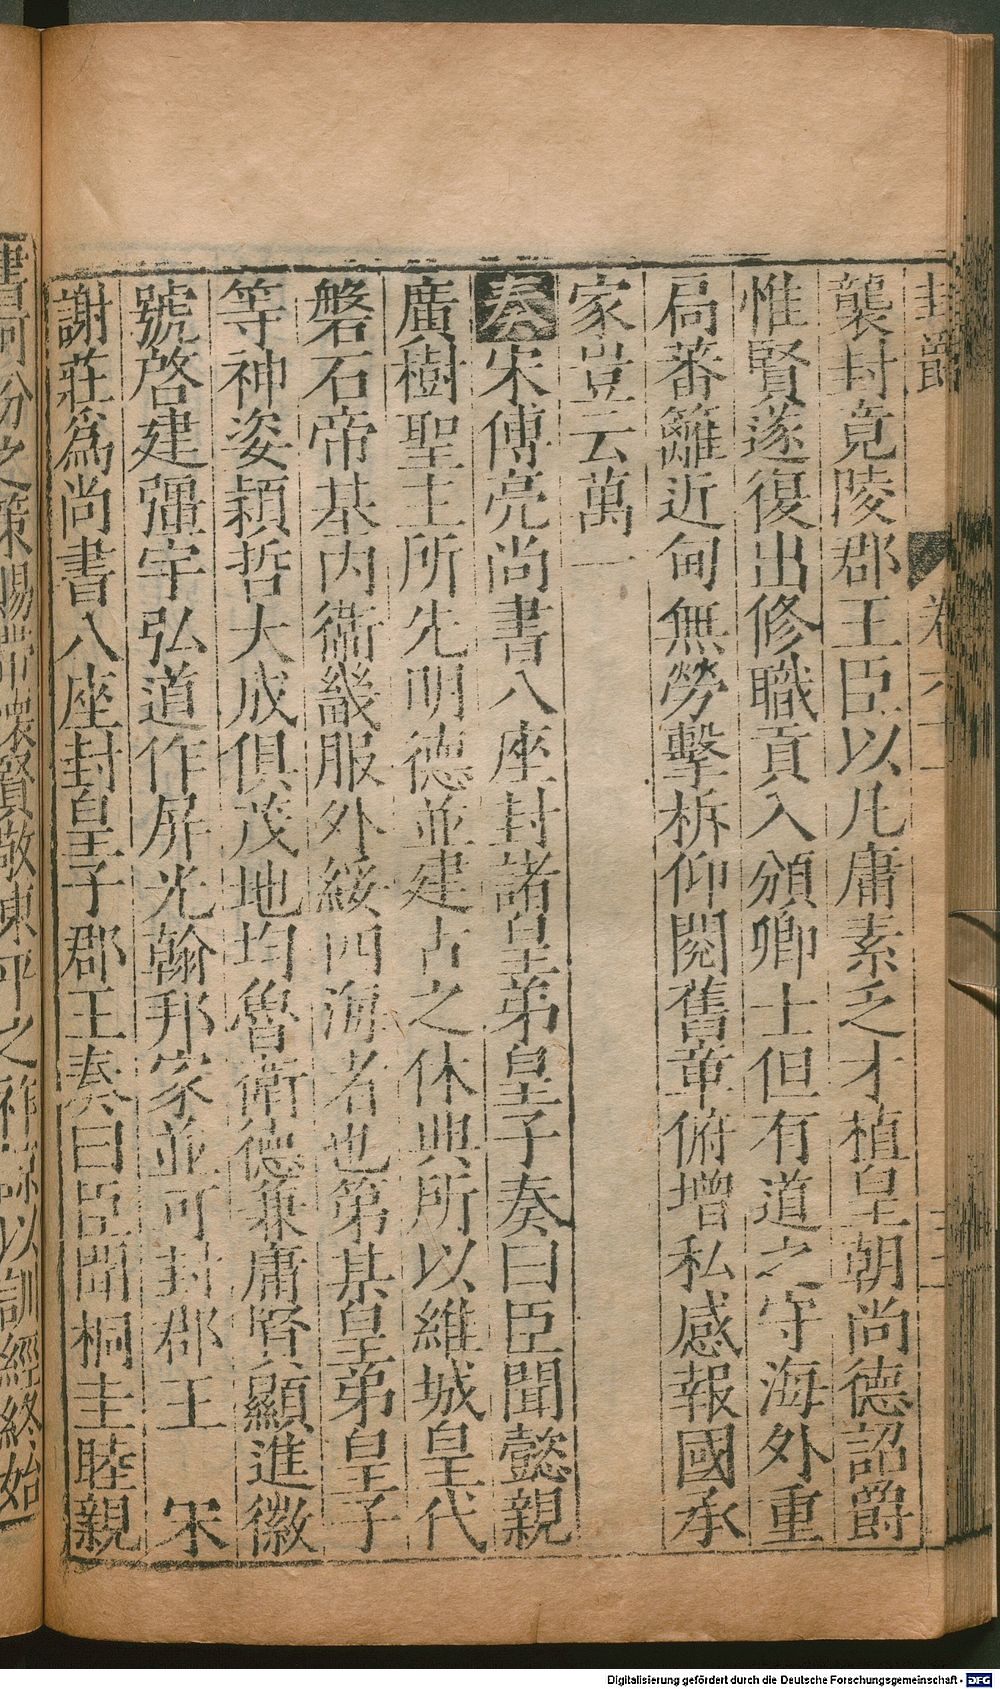 襲封竟陵郡王臣以凡庸素乏才植皇朝尚德詔爵
惟賢遂復出修職貢入頒卿士但有道之守海外重
局蕃籬近甸無勞擊柝仰閱舊章俯增私感報國承
家豈云萬一
奏宋傅亮尚書八座封諸皇弟皇子奏曰臣聞懿親
廣樹聖王所先明德並建古之休典所以維城皇代
磐石帝基內衛畿服外綏四海者也第某皇弟皇子
等神姿穎哲大成俱茂地均魯衛德兼庸賢顯進徽
號啓建彊宇弘道作屏光翰邦家並可封郡王 宋
謝莊為尚書八座封皇子郡王奏曰臣聞桐圭睦親
封爵
卷
Digitalisierung gefördert durch die Deutsche Forschungsgemeinschaft - DFG